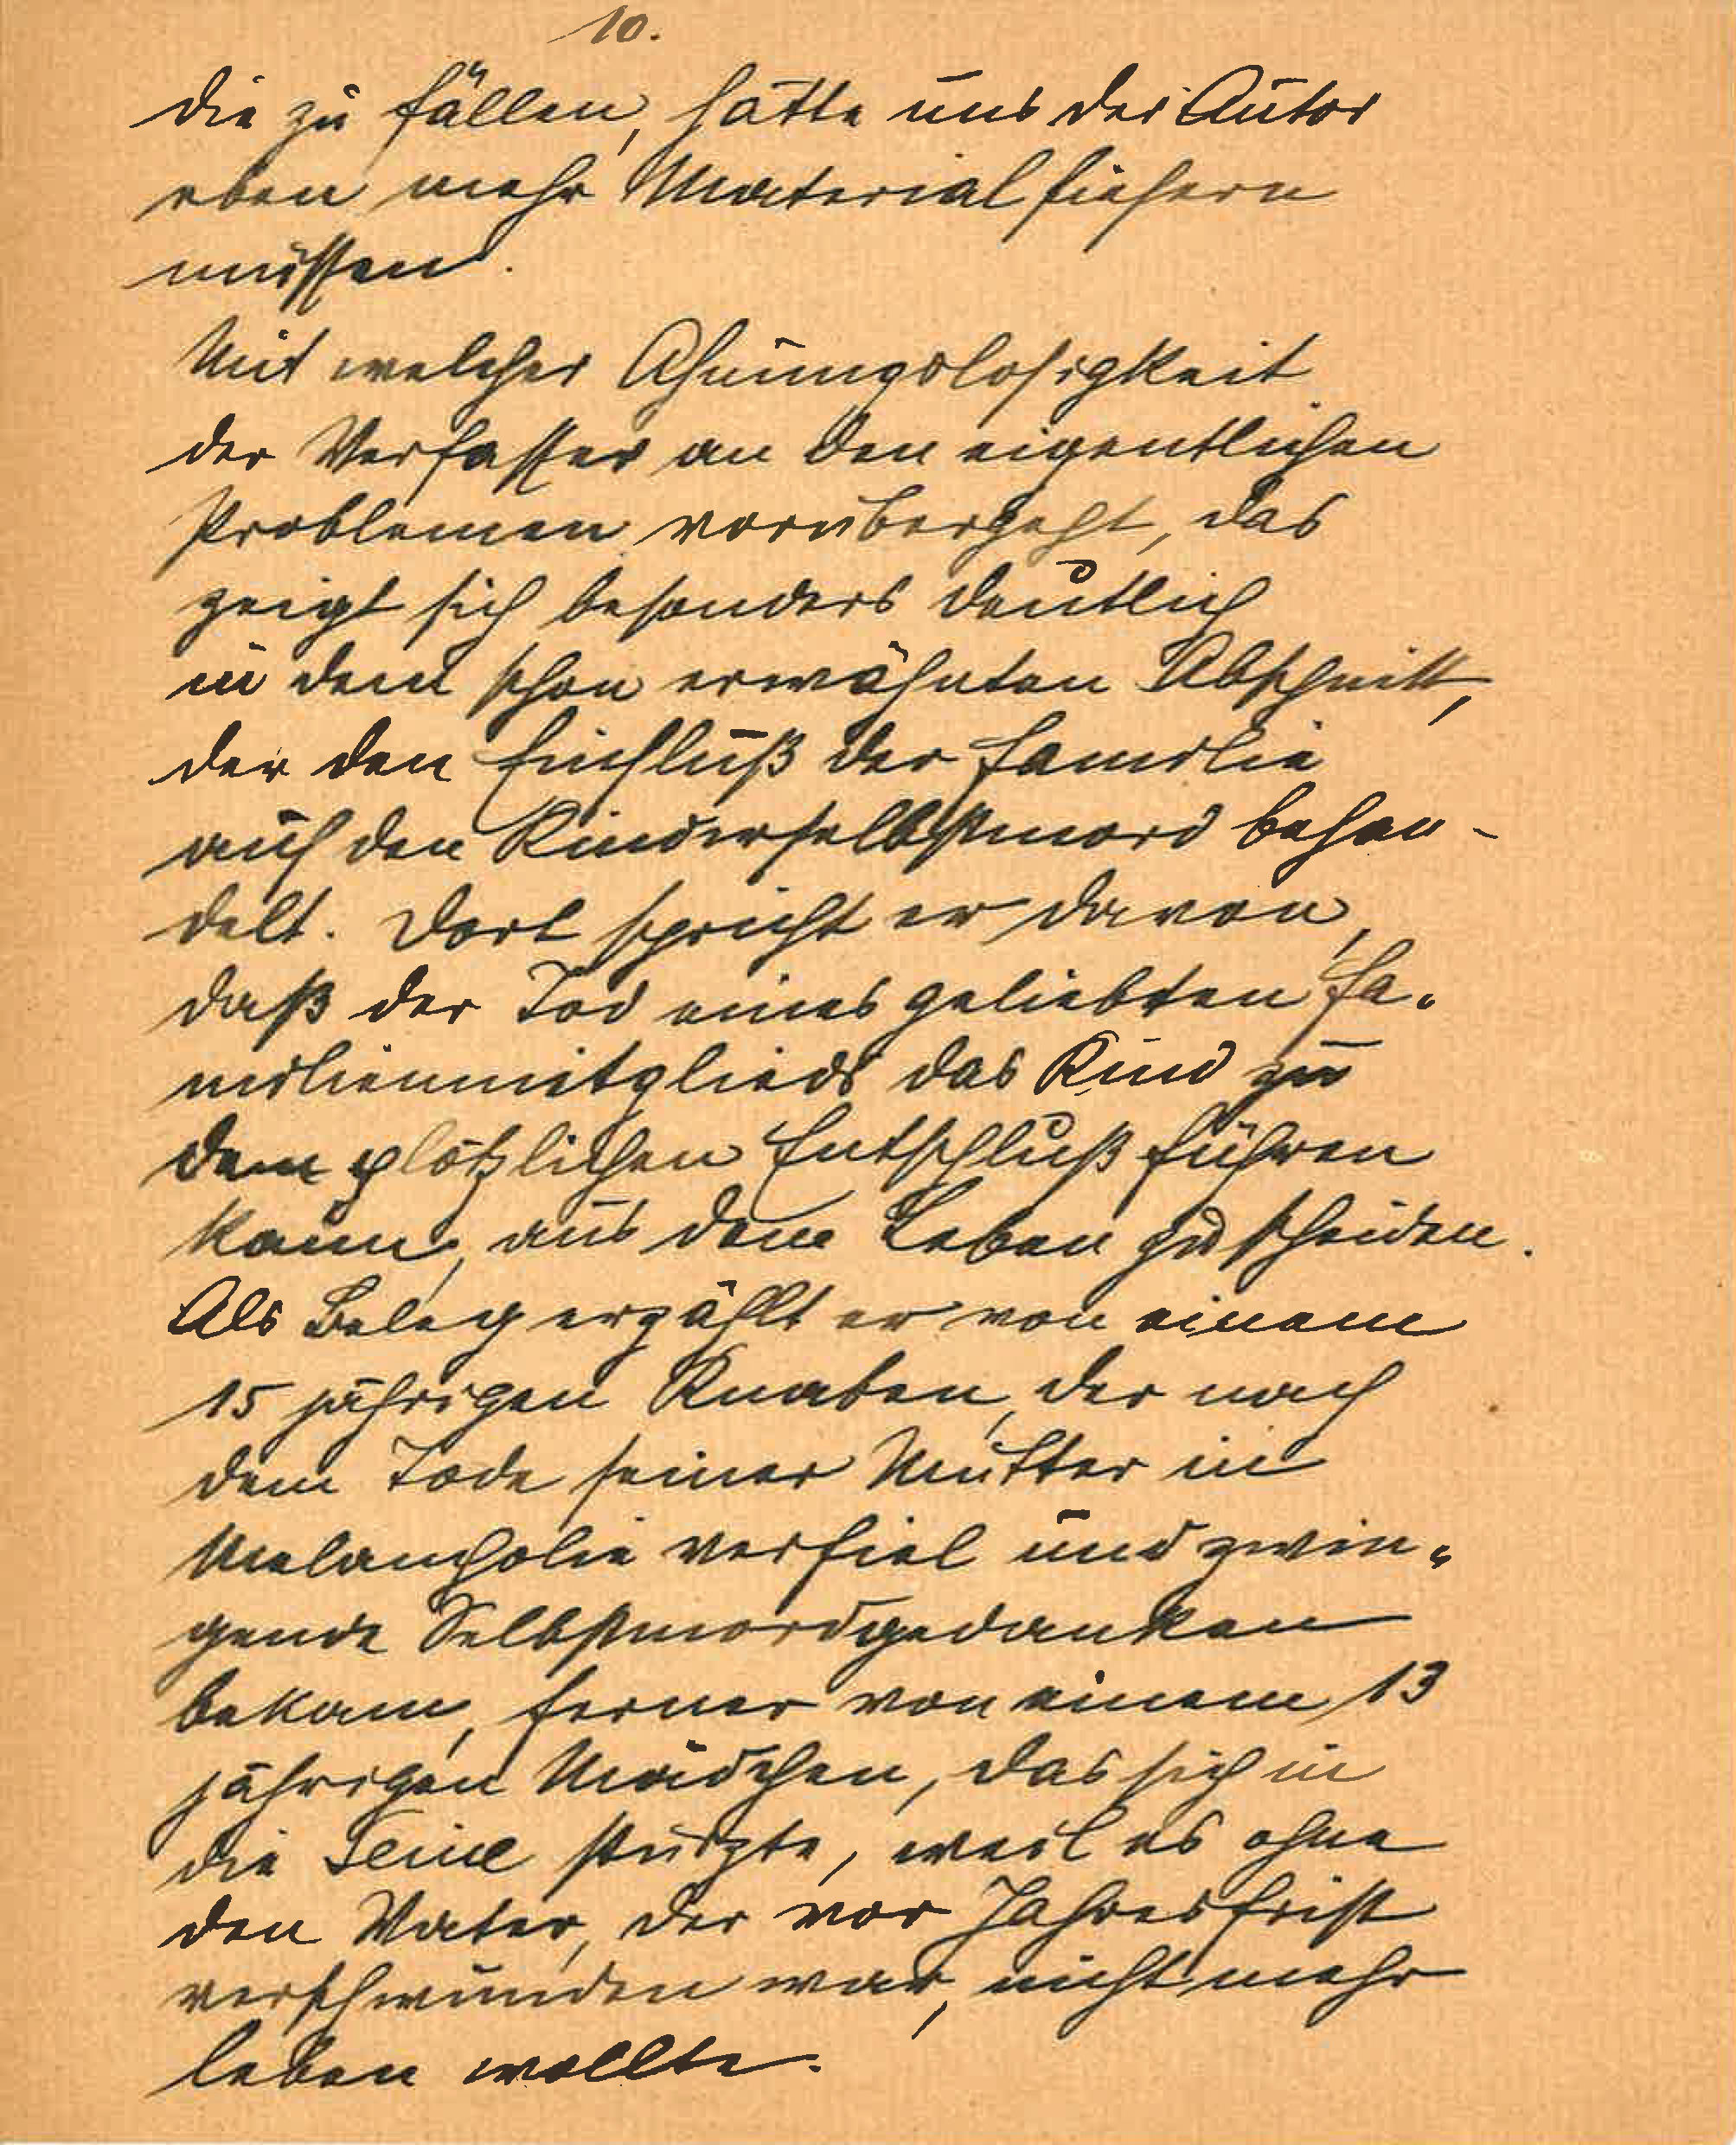 10.
die zu fällen, hätte uns der Autor
eben mehr Material liefern
müssen.
Mit welcher Ahnungslosigkeit
der Verfasser an den eigentlichen
Problemen vorübergeht, das
zeigt sich besonders deutlich
in dem schon erwähnten Abschnitt,
der den Einfluß der Familie
auf den Kinderselbstmord behan-
delt. Dort spricht er davon,
daß der Tod eines geliebten Fa-
milienmitglieds das Kind zu
dem plötzlichen Entschluß führen
kann, aus dem Leben zu scheiden.
Als Beleg erzählt er von einem
15 jährigen Knaben, der nach
dem Tode seiner Mutter in
Melancholie verfiel und zwin-
gende Selbstmordgedanken
bekam, ferner von einem 13
jährigen Mädchen, das sich in
die Seine stürzte, weil es ohne
den Vater, der vor Jahresfrist
verschwunden war, nicht mehr
leben wollte.